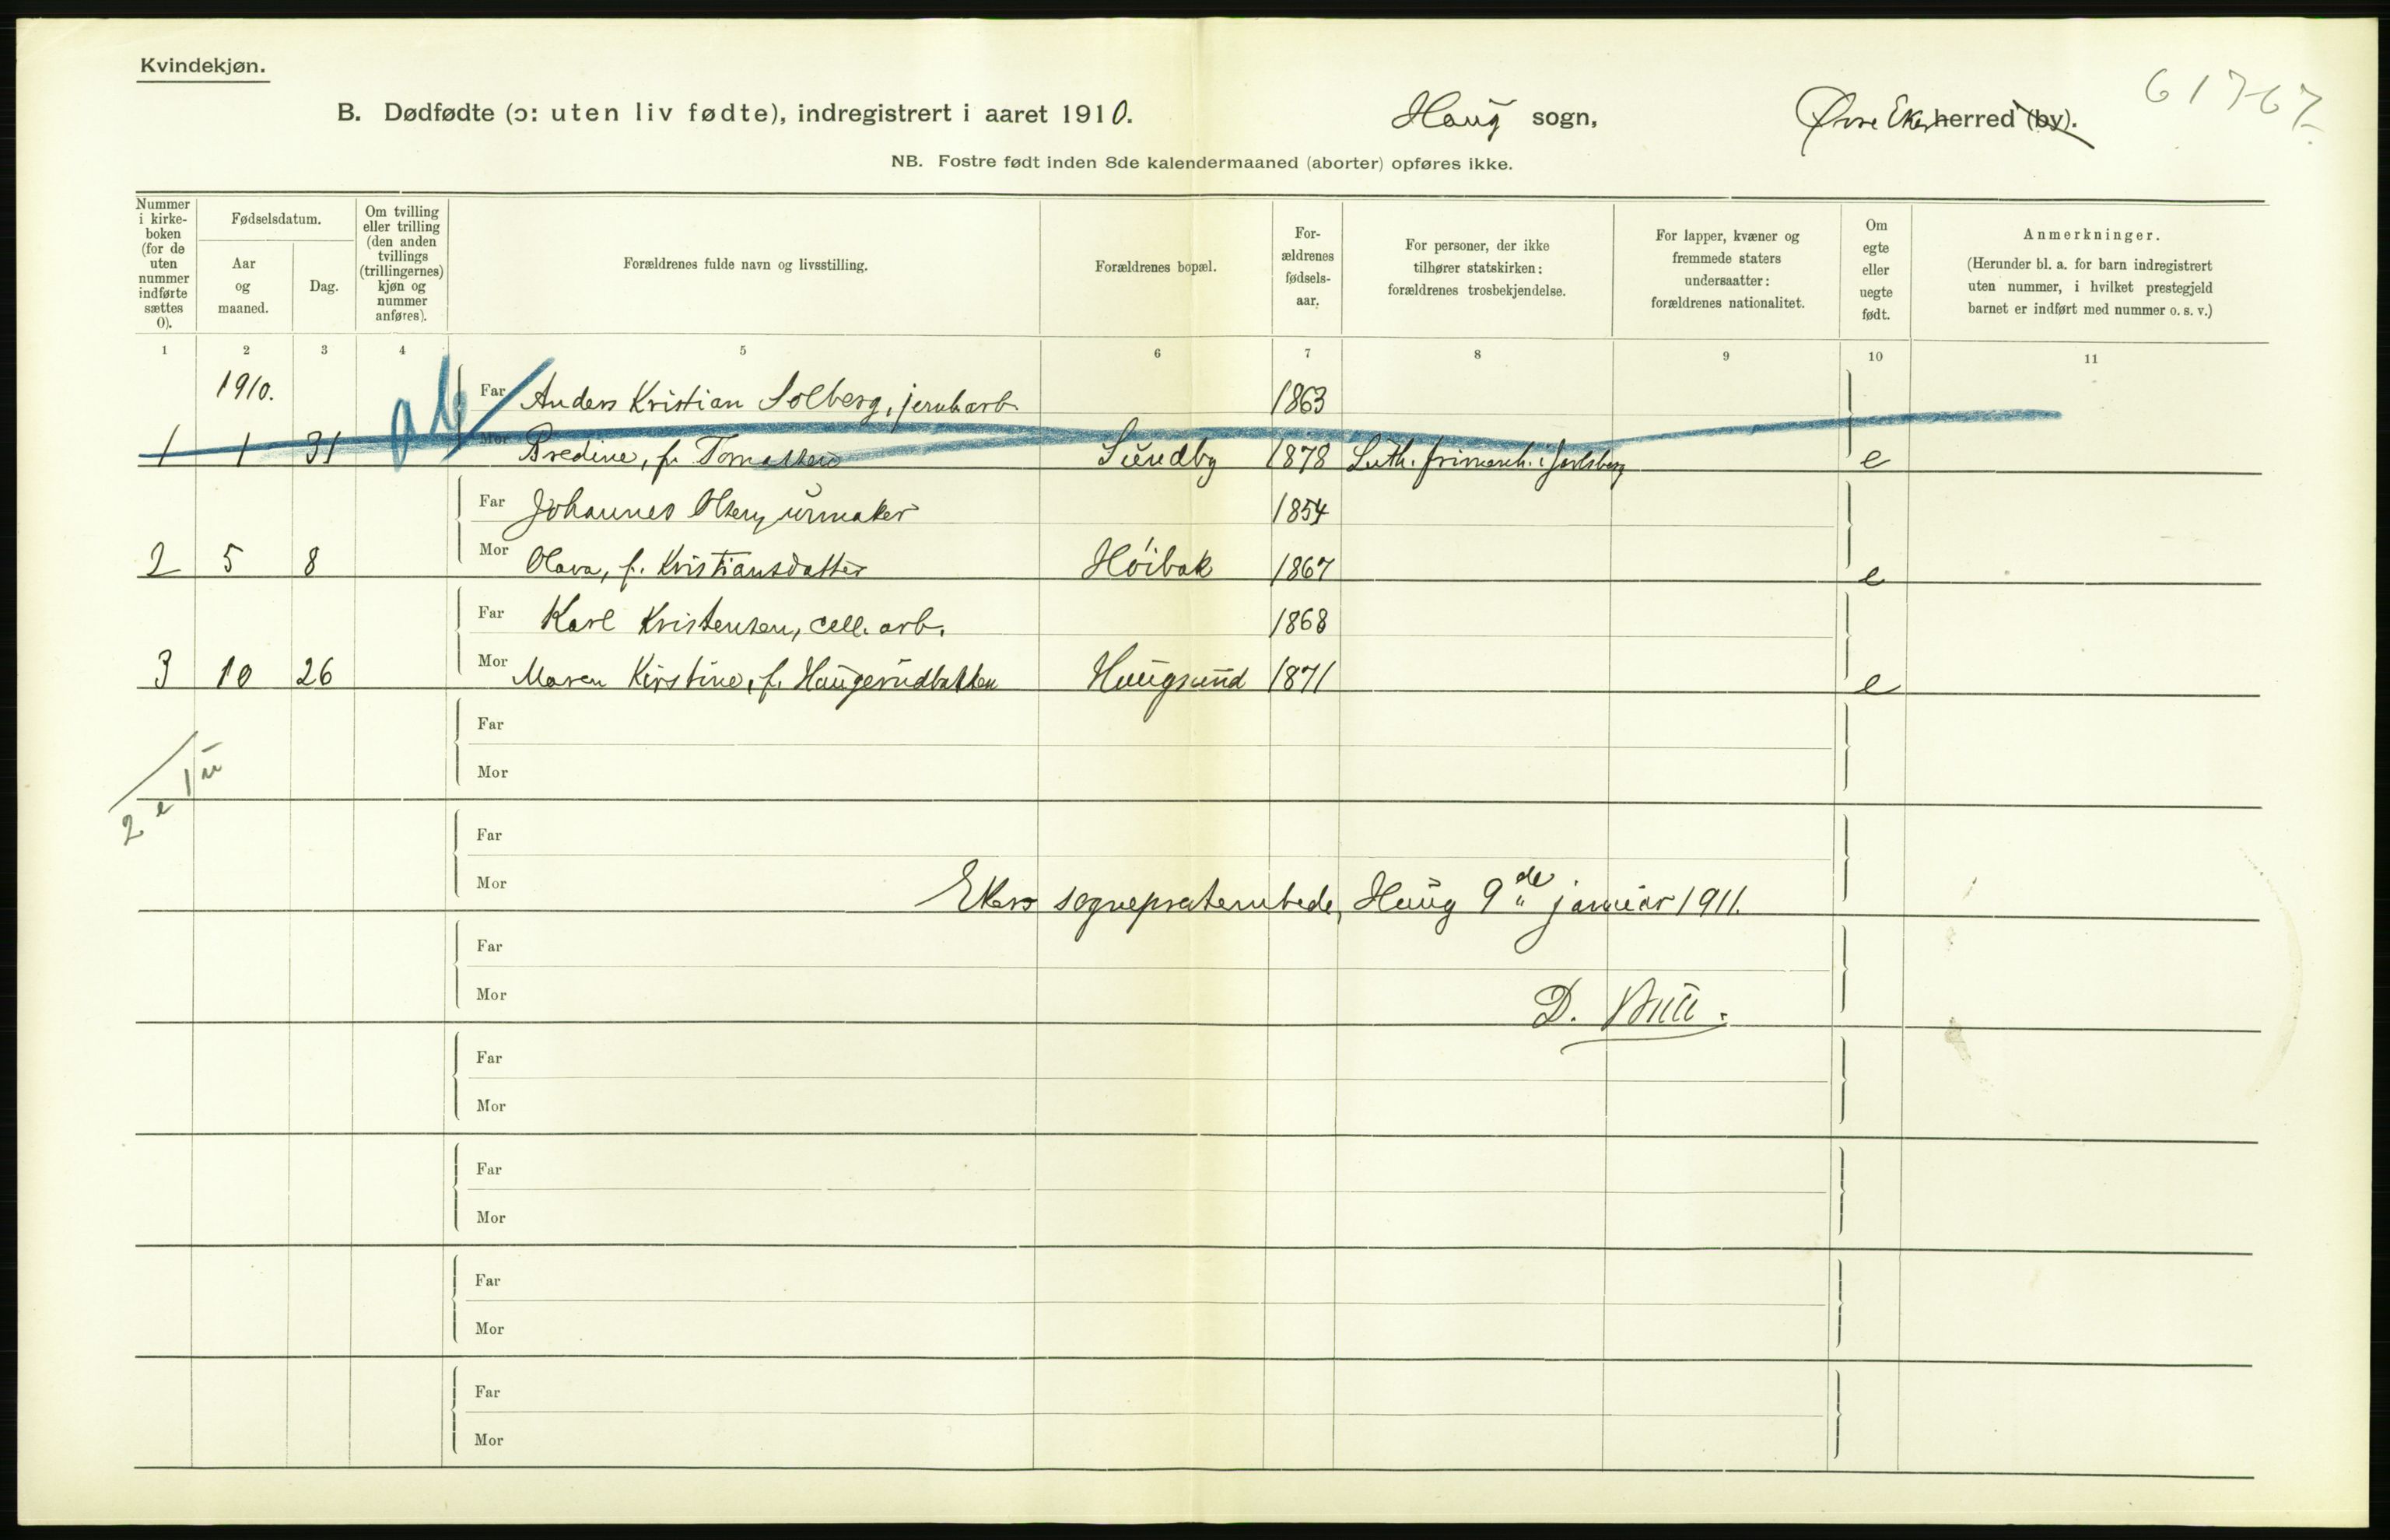 Kvindekjøn.
6 1 7-67
B. Dødfødte (ɔ: uten liv fødte), indregistrert i aaret 1910.
Haug sogn,
Øvre Eker herred (by).
NB. Fostre født inden 8de kalendermaaned (aborter) opføres ikke.
Nummer
i kirke-
boken
(for de
uten
nummer
indførte
sættes
0).
Fødselsdatum.
Aar
og
maaned.
Dag.
Om tvilling
eller trilling
(den anden
tvillings
(trillingernes)
kjøn og
nummer
anføres).
Forældrenes fulde navn og livsstilling.
Forældrenes bopæl.
For-
ældrenes
fødsels-
aar.
For personer, der ikke
tilhører statskirken:
forældrenes trosbekjendelse.
For lapper, kvæner og
fremmede staters
undersaatter:
forældrenes nationalitet.
Om
egte
eller
uegte
født.
Anmerkninger.
(Herunder bl. a. for barn indregistrert
uten nummer, i hvilket prestegjeld
barnet er indført med nummer o. s. v.)
1 2 3 4 5 6 7 8 9 10 11
1910. Far Anders Kristian Solberg, jernb.arb. 1863
1 1 31 Mor Bredine, f. Tomassen Sundby 1878 Luth. i Jarlsberg e
Far Johannes Olsen, urmaker 1854
2 5 8 Mor Olava, f. Kristiansdatter Høibak 1867 e
Far Karl Kristensen, cell. arb. 1868
3 10 26 Mor Maren Kirstine, f. Haugerudbakken Haugsund 1871 e
Far
Mor
2 e 1 u
Far
Mor
Ekers sogneprestembede, Haug 9de januar 1911.
Far
Mor
D. Bull.
Far
Mor
Far
Mor
Far
Mor
Far
Mor